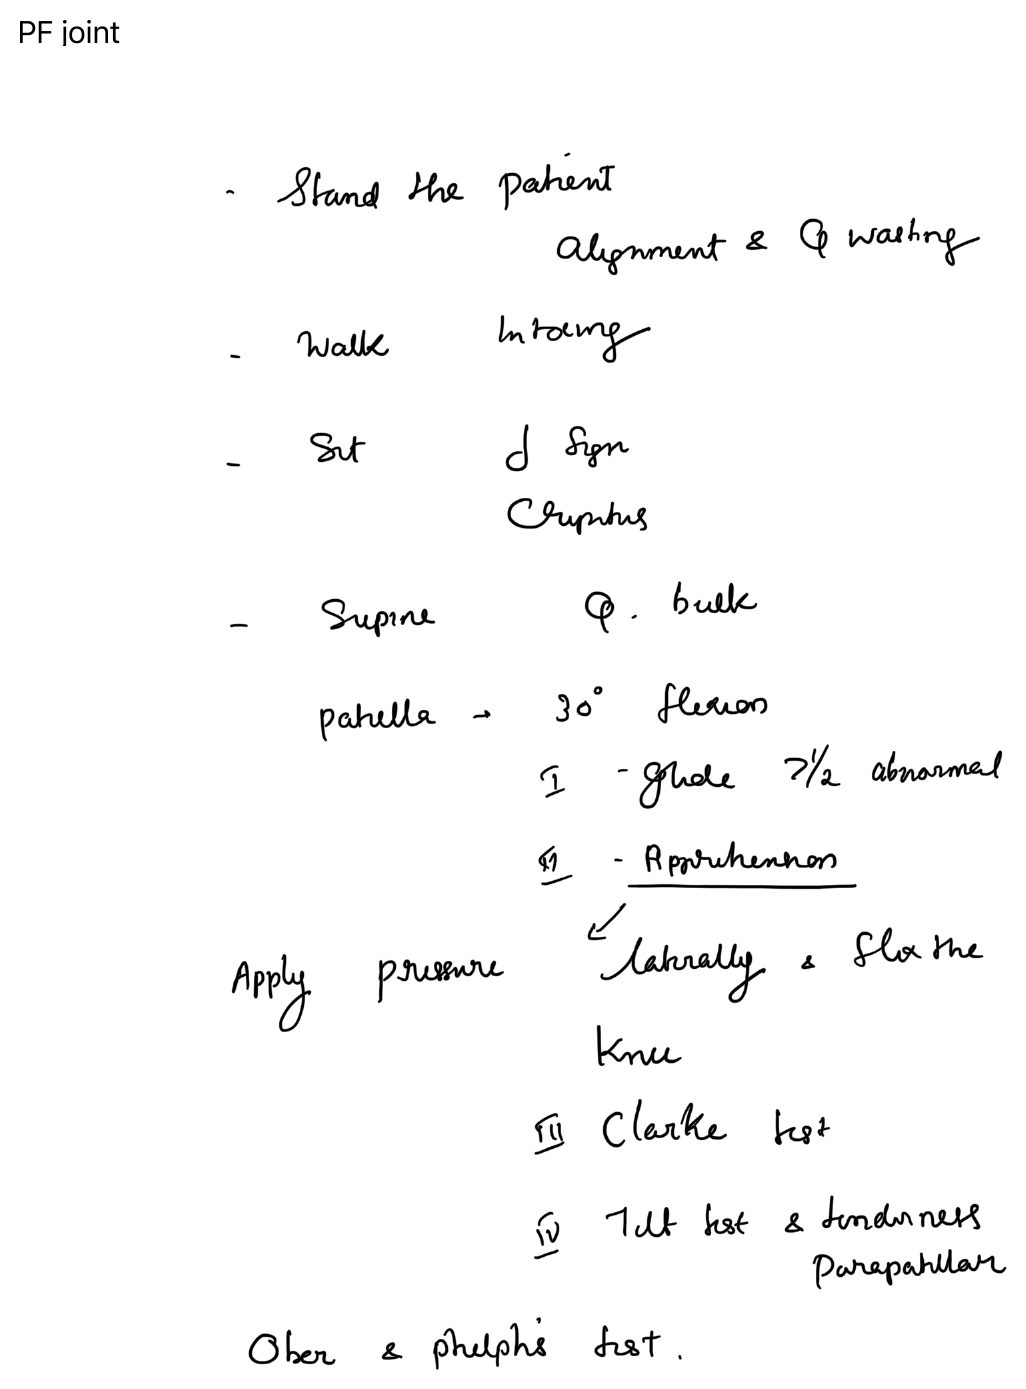 PF joint
- Stand the patient
Alignment & Q wasting
- Walk Intoeing
- Sit J sign
Crepitus
- Supine Q. bulk
patella → 30° flexion
I - glide >1/2 abnormal
II - Apprehension
Apply pressure laterally & flex the
knee
III Clarke test
IV Tilt test & tenderness
Parapatellar
Ober & phelph's test.